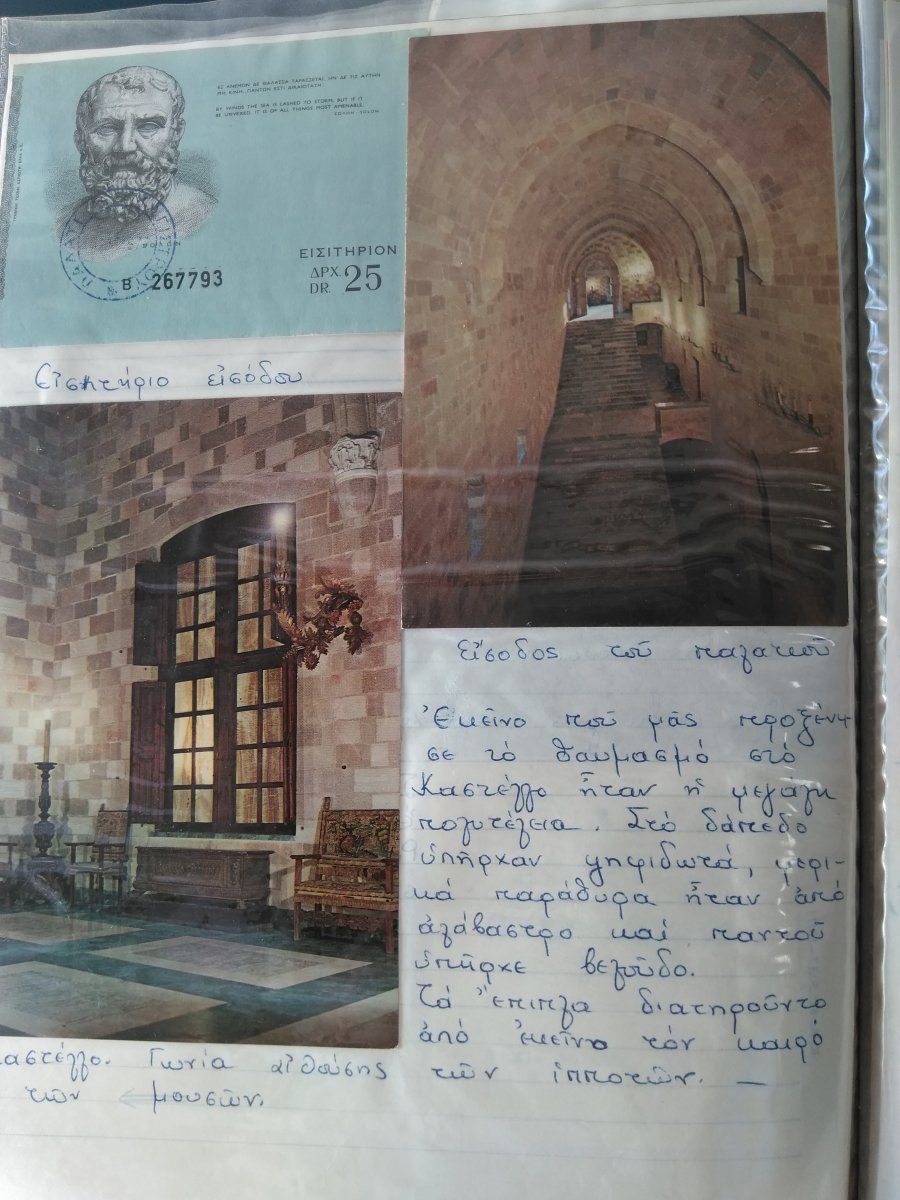 ΕΞ ΑΝΕΜΩΝ ΔΕ ΘΑΛΑΣΣΑ ΤΑΡΑΣΣΕΤΑΙ, ΗΝ ΔΕ ΤΙΣ ΑΥΤΗΝ
ΜΗ ΚΙΝΗ, ΠΑΝΤΩΝ ΕΣΤΙ ΔΙΚΑΙΟΤΑΤΗ.
BY WINDS THE SEA IS LASHED TO STORM, BUT IF IT
BE UNVEXED, IT IS OF ALL THINGS MOST AMENABLE.
ΣΟΛΩΝ - SOLON
ΕΙΣΙΤΗΡΙΟΝ
ΔΡΧ. 25
DR.
B 267793
Εἰσητήριο εἰσόδου
Εἴσοδος τοῦ παλατιοῦ
Ἐκεῖνο ποῦ μᾶς προξένη
σε τὸ θαυμασμό στὸ
Καστέλλο ἦταν ἡ μεγάλη
πολυτέλεια. Στὸ δάπεδο
ὑπῆρχαν ψηφιδωτά, μερι-
κά παράθυρα ἦταν ἀπό
ἀλάβαστρο καί παντοῦ
ὑπῆρχε βελοῦδο.
Τά ἔπιπλα διατηροῦντο
ἀπό ἐκεῖνο τόν καιρό
τῶν ἱπποτῶν. —
αστέλλο. Γωνία αἰθούσης
τῶν ← μουσῶν.